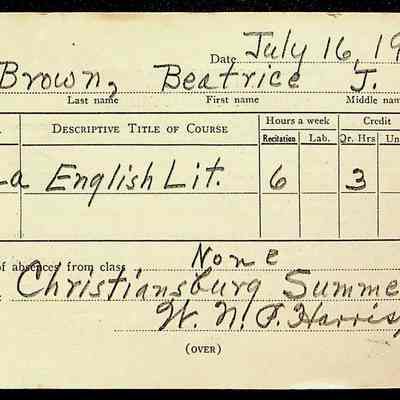 Date July 16, 19
Brown, Beatrice J.
Last name First name Middle nam
DESCRIPTIVE TITLE OF COURSE Hours a week Credit
Recitation Lab. Qr. Hrs Un
a English Lit. 6 3
of absences from class None
Christiansburg Summe
W. N. P. Harris,
(OVER)